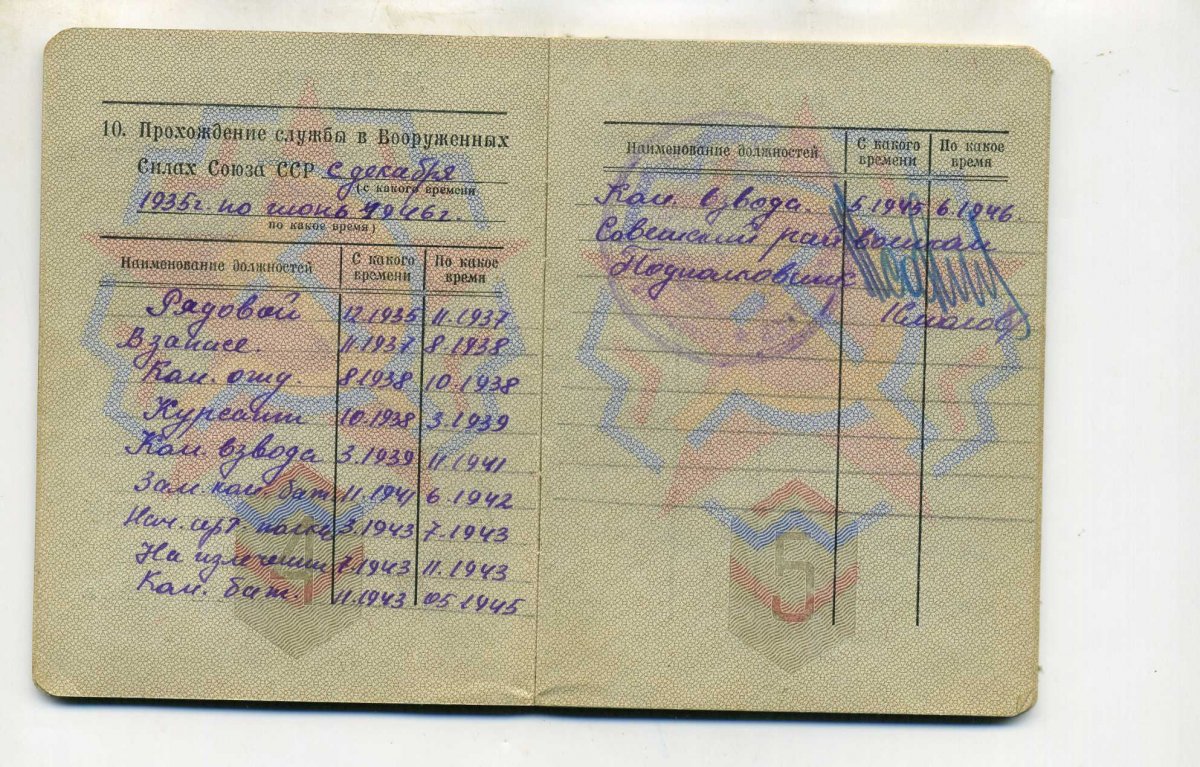 10. Прохождение службы в Вооруженных
Силах Союза ССР с декабря
(с какого времени
1935г. по июнь 1946г.
по какое время)
Наименование должностей С какого времени По какое время
Рядовой 12.1935 11.1937
В запасе. 11.1937 8.1938
Ком. отд. 8.1938 10.1938
Курсант 10.1938 3.1939
Ком. взвода 3.1939 11.1941
Зам. ком. бат. 11.1941 6.1942
Нач. арт. полка 3.1943 7.1943
На излечении 7.1943 11.1943
Ком. бат. 11.1943 05.1945
4
Наименование должностей С какого времени По какое время
Ком. взвода. 5.1945 6.1946.
Советский райвоенком
Подполковник
5